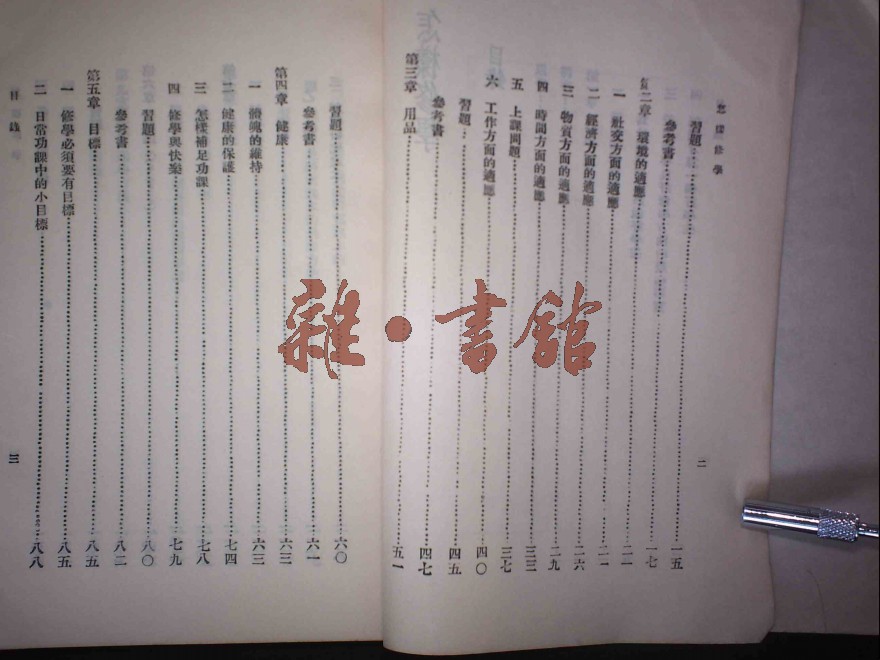 怎樣修學
二
習題……一五
參考書……一七
第二章 環境的適應……二一
一 社交方面的適應……二一
二 經濟方面的適應……二六
三 物質方面的適應……二九
四 時間方面的適應……三三
五 上課問題……三七
六 工作方面的適應……四〇
習題……四五
參考書……四七
第三章 用品……五一
習題……六〇
參考書……六一
第四章 健康……六三
一 體魄的維持……六三
二 健康的保護……七四
三 怎樣補足功課……七八
四 修學與快樂……七九
習題……八〇
參考書……八二
第五章 目標……八五
一 修學必須要有目標……八五
二 日常功課中的小目標……八八
目錄
三
雜·書館